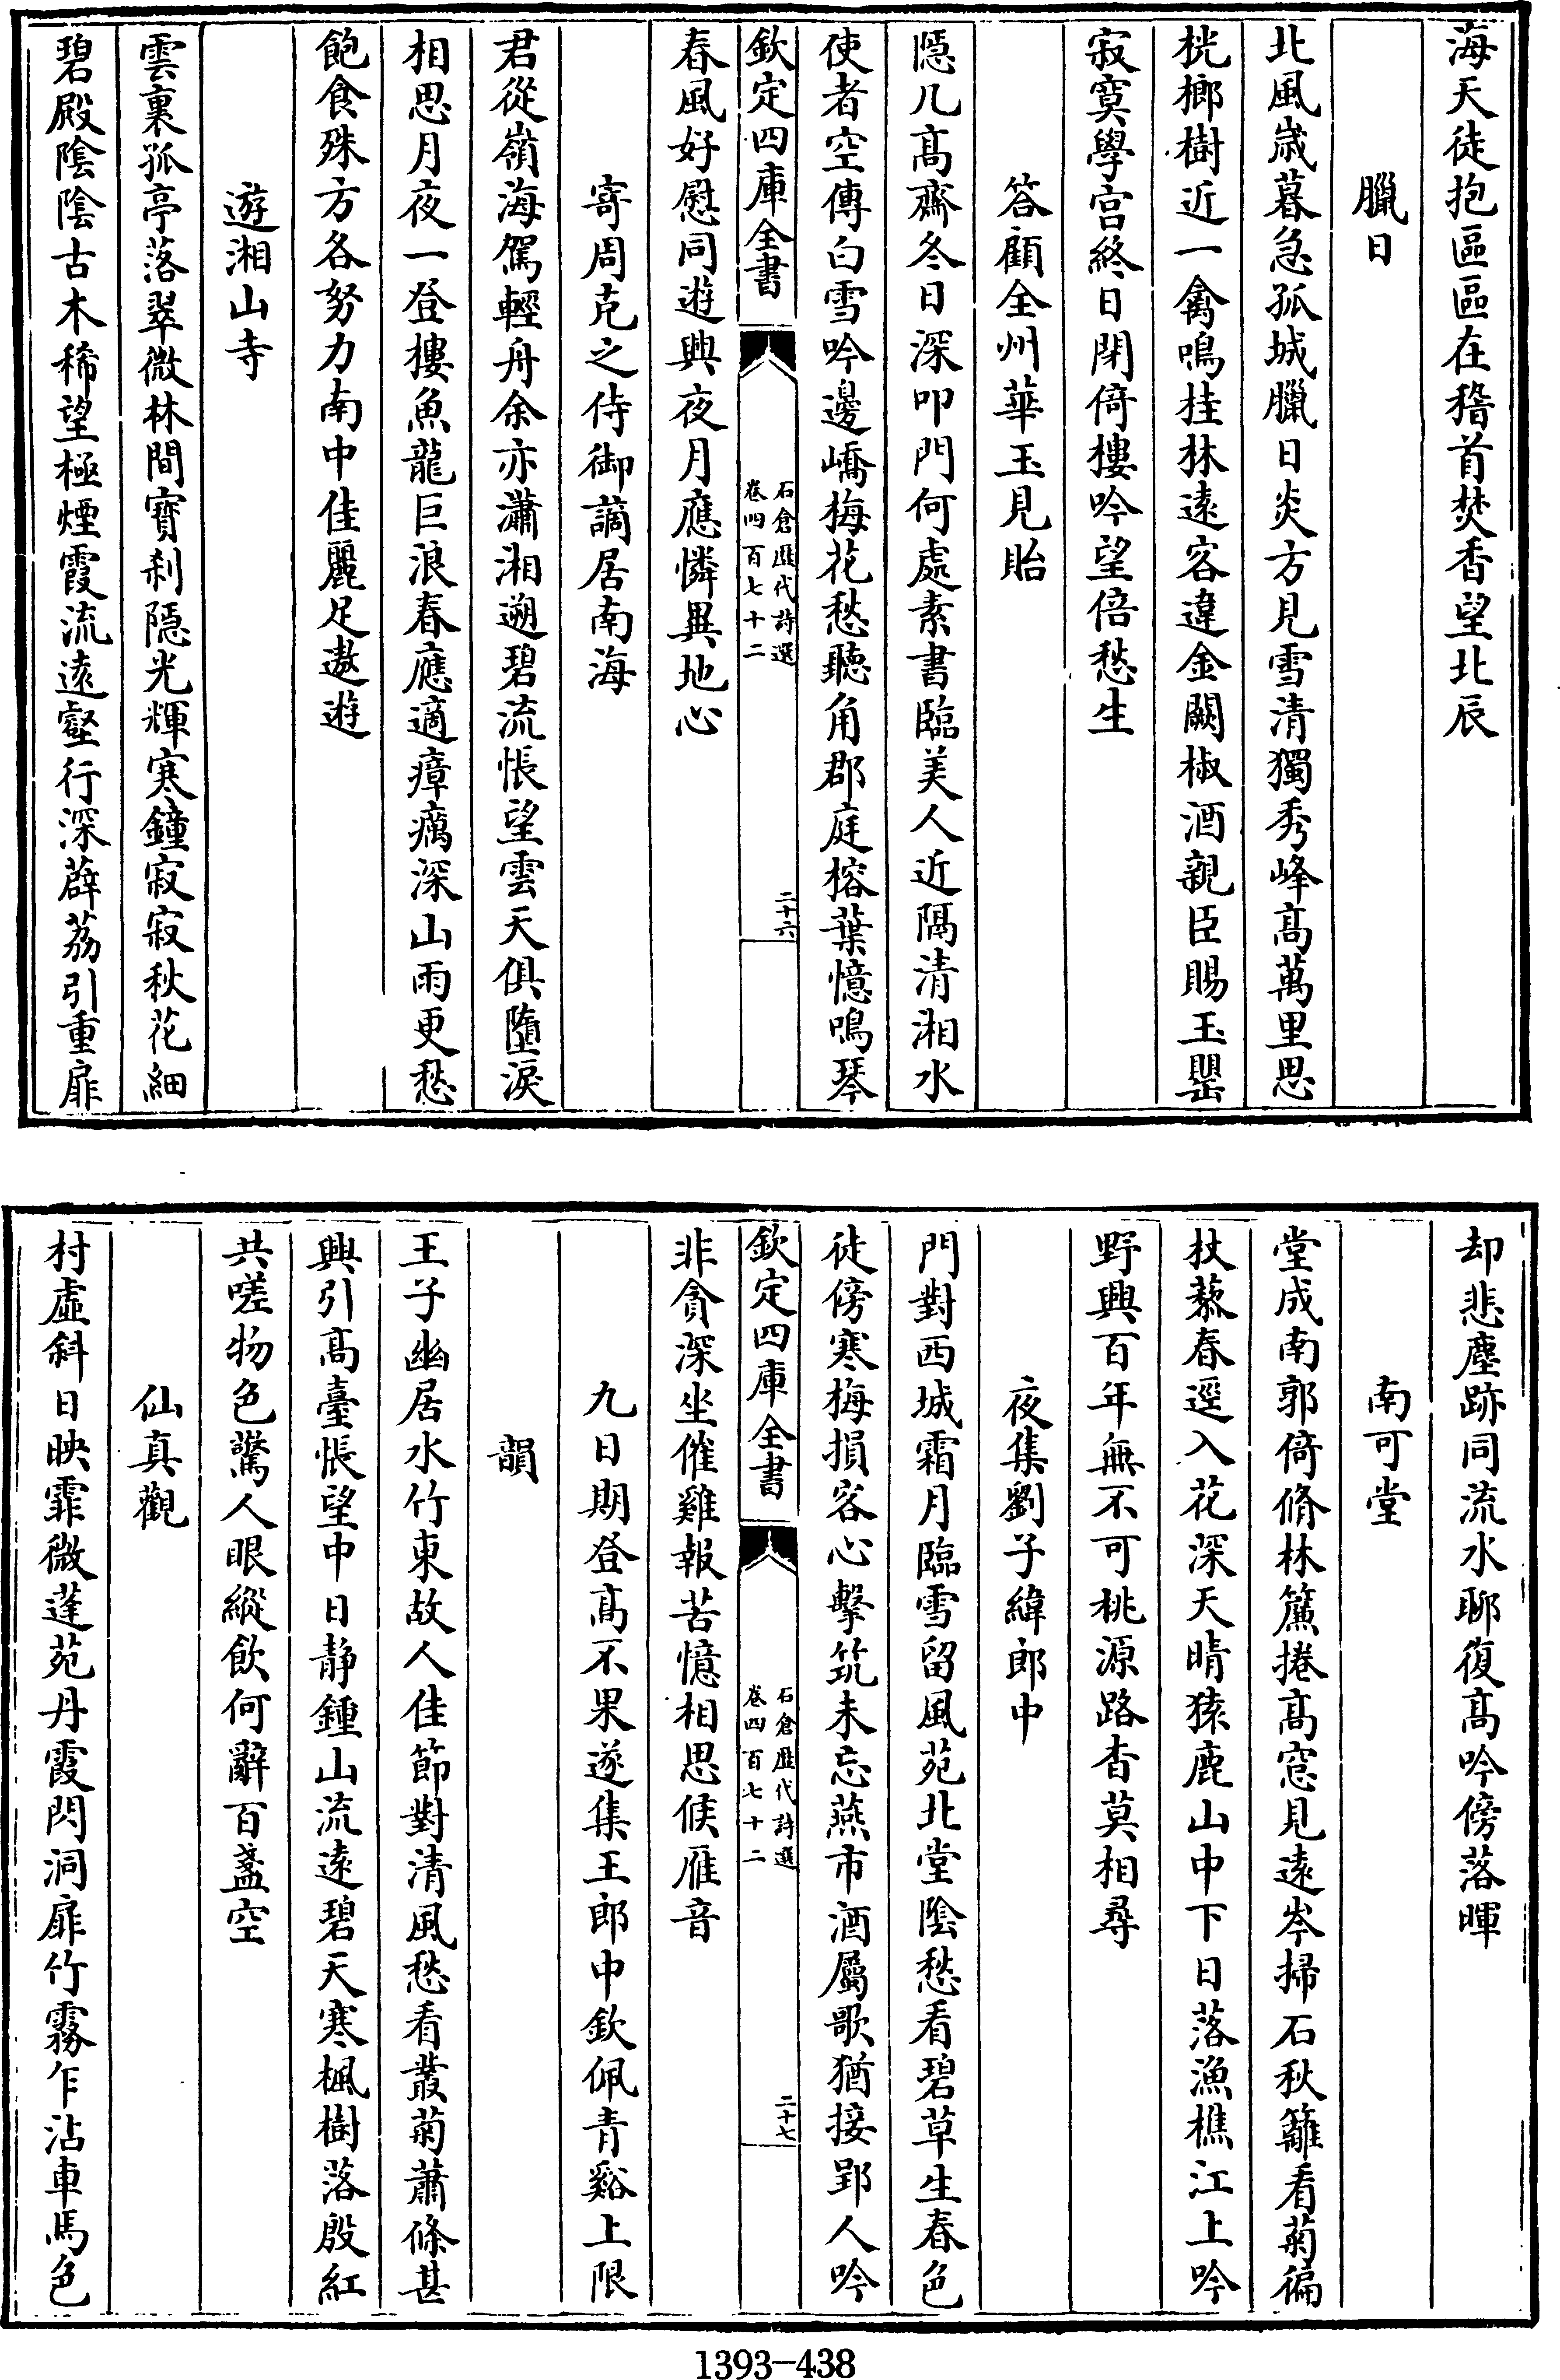 海天徒抱區區在稽首焚香望北辰
臘日
北風歳暮急孤城臘日炎方見雪清獨秀峰髙萬里思
桄榔樹近一禽鳴挂林逺客違金闕椒酒親臣賜玉罌
寂寞學宫終日閉倚樓吟望倍愁生
答顧全州華玉見貽
隠几髙齋冬日深叩門何處素書臨美人近隔清湘水
使者空傳白雪吟邊嶠梅花愁聽角郡庭榕葉憶鳴琴
欽定四庫全書
石倉歴代詩選
卷四百七十二
二十六
春風好慰同遊興夜月應憐異地心
寄周克之侍御謫居南海
君從嶺海駕輕舟余亦瀟湘遡碧流悵望雲天俱墮淚
相思月夜一登樓魚龍巨浪春應適瘴癘深山雨更愁
飽食殊方各努力南中佳麗足遨遊
遊湘山寺
雲裏孤亭落翠微林間寳刹隠光輝寒鐘寂寂秋花細
碧殿隂隂古木稀望極煙霞流逺壑行深薜荔引重扉
却悲塵跡同流水聊復髙吟傍落暉
南可堂
堂成南郭倚脩林簾捲髙窓見逺岑掃石秋籬看菊徧
杖藜春逕入花深天晴猿鹿山中下日落漁樵江上吟
野興百年無不可桃源路杳莫相尋
夜集劉子緯郎中
門對西城霜月臨雪留風苑北堂隂愁看碧草生春色
徒傍寒梅損客心擊筑未忘燕市酒屬歌猶接郢人吟
欽定四庫全書
石倉歴代詩選
卷四百七十二
二十七
非貪深坐催雞報苦憶相思候雁音
九日期登髙不果遂集王郎中欽佩青谿上限
韻
王子幽居水竹東故人佳節對清風愁看叢菊蕭條甚
興引髙臺悵望中日静鍾山流逺碧天寒楓樹落殷紅
共嗟物色驚人眼縱飲何辭百盞空
仙真觀
村虛斜日映霏微蓬苑丹霞閃洞扉竹霧乍沾車馬色
1393-438